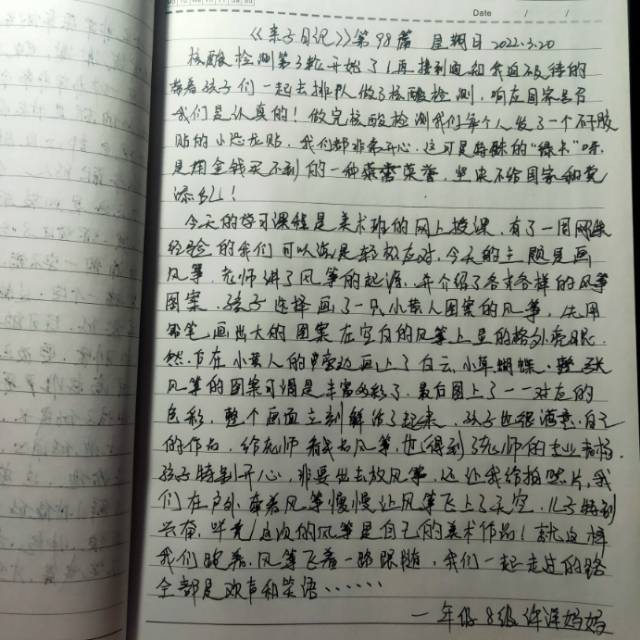 Date / /
《亲子日记》第98篇 星期日 2022.3.20
核酸检测第3轮开始了!再接到通知我迫不及待的
带着孩子们一起去排队做了核酸检测,响应国家号召
我们是认真的!做完核酸检测我们每个人发了一个不干胶
贴的小恐龙贴,我们都非常开心,这可是特殊的“绿卡”呀,
是用金钱买不到的一种荣誉,坚决不给国家和党
添乱!
今天的学习课程是美术班的网上授课,有了一周网课
经验的我们可以说是轻松应对,今天的主题是画
风筝,老师讲了风筝的起源,并介绍了各式各样的风筝
图案,孩子选择画了一只小黄人图案的风筝,先用
铅笔画出大的图案在空白的风筝上显的格外亮眼,
然后在小黄人的旁边画上了白云,小草蝴蝶,整张
风筝的图案可谓是丰富多彩了,最后图上了一一对应的
色彩,整个画面立刻鲜活了起来,孩子也很满意自己
的作品,给老师看我的风筝,也得到了老师的表扬,
孩子特别开心,非要出去放风筝,还让我给拍照片,我
们在户外牵着风筝慢慢让风筝飞上了天空,儿子特别
兴奋,毕竟这次的风筝是自己的美术作品!就这样
我们跑着,风筝飞着一路跟随,我们一起走过的路
全部是欢声和笑语······
一年级8级 许洋妈妈